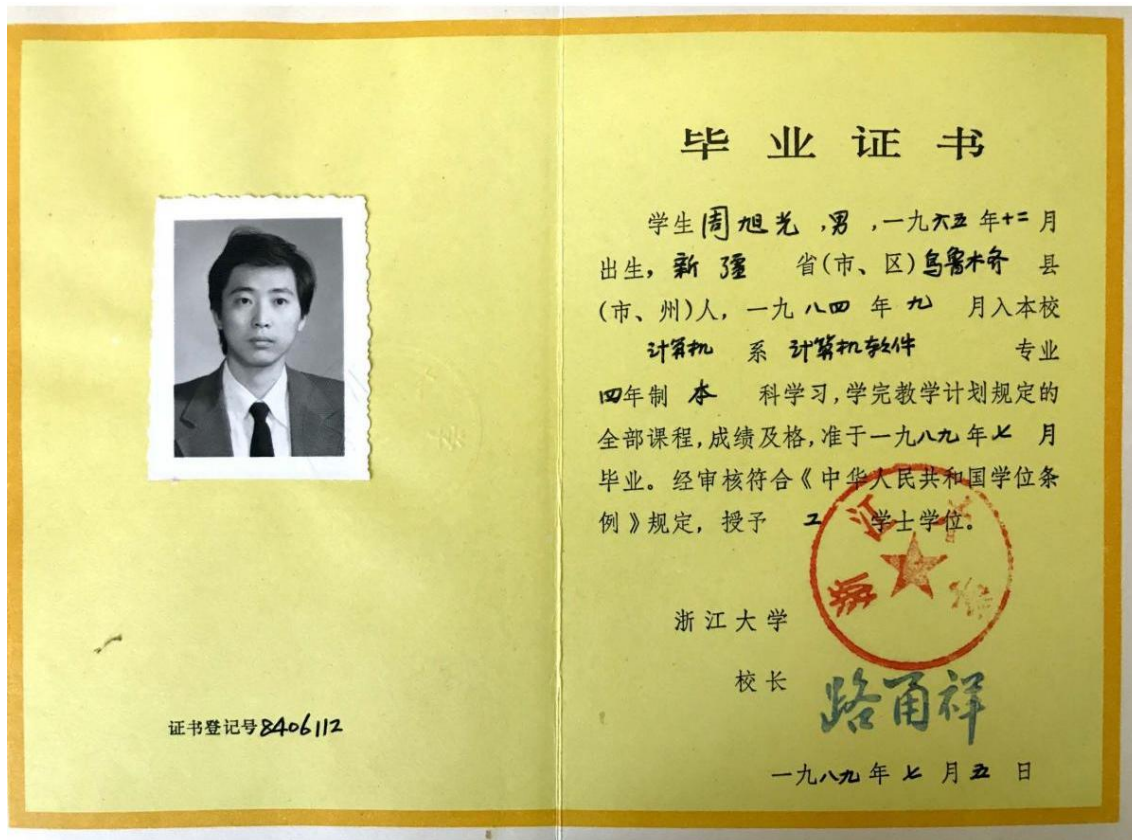 证书登记号8406112
毕业证书
学生周旭光,男,一九六五年十二月
出生,新疆 省(市、区)乌鲁木齐 县
(市、州)人,一九八四年九 月入本校
计算机 系 计算机软件 专业
四年制 本 科学习,学完教学计划规定的
全部课程,成绩及格,准于一九八九年七 月
毕业。经审核符合《中华人民共和国学位条
例》规定,授予 工 学士学位。
浙江大学
浙江大学
校长 路甬祥
一九八九年七月五日